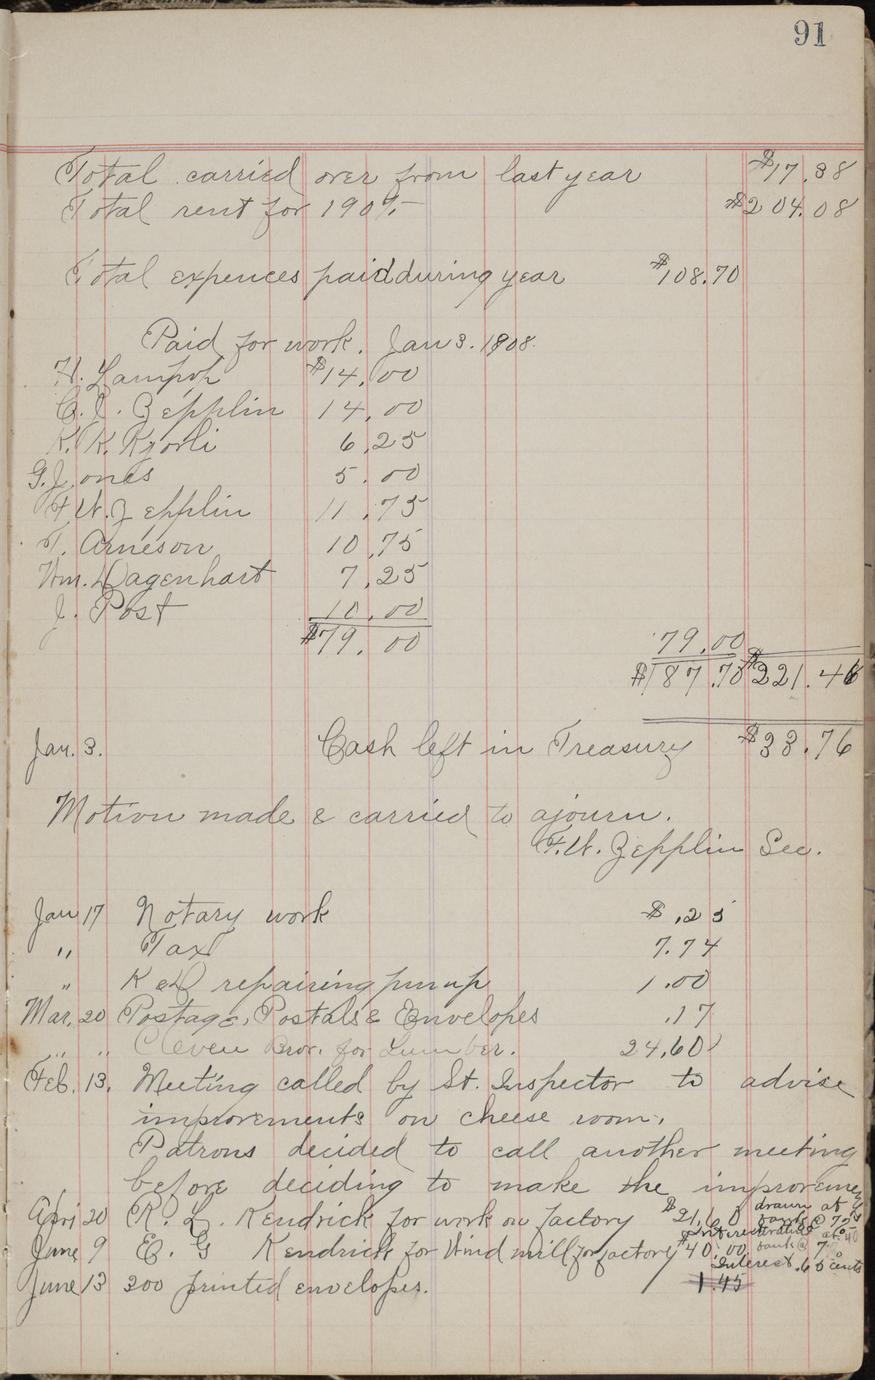 91
Total carried over from last year $17.38
Total rent for 1907. $204.08
Total expences paid during year $108.70
Paid for work. Jan 3. 1908.
H. Lampoh $14.00
C. C. Zepplin 14.00
K. K. Kjorli 6.25
G. Jones 5.00
F. W. Zepplin 11.75
T. Arneson 10.75
Wm. Dagenhart 7.25
J. Post 10.00
$79.00 79.00
$187.70 $221.46
Jan. 3. Cash left in Treasury $33.76
Motion made & carried to ajourn.
F. W. Zepplin Sec.
Jan 17 Notary work $ .25
" Tax 7.74
" K & D repairing pump 1.00
Mar. 20 Postage, Postals & Envelopes .17
" " Cleven Bros. for Lumber. 24.60
Feb. 13. Meeting called by St. Inspector to advise
improvements on cheese room.
Patrons decided to call another meeting
before deciding to make the improvemen
April 20 R. L. Kendrick for work on factory $21.60 drawn at bank @ 7
June 9 E. G Kendrick for Wind mill for factory $40.00 bank @ 7
Interest .65 cents
June 13 300 printed envelopes. 1.45